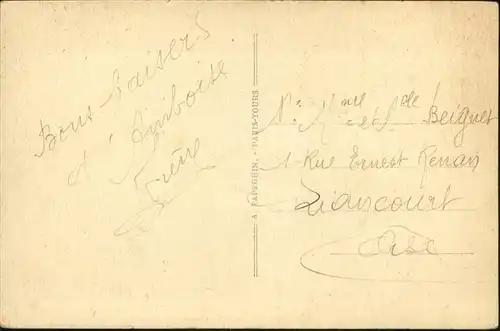 Bons baisers
d'Amboise
A. PAPEGHIN. - PARIS-TOURS
Mme et de Beignet
1 Rue Ernest Renan
Liancourt
Oise